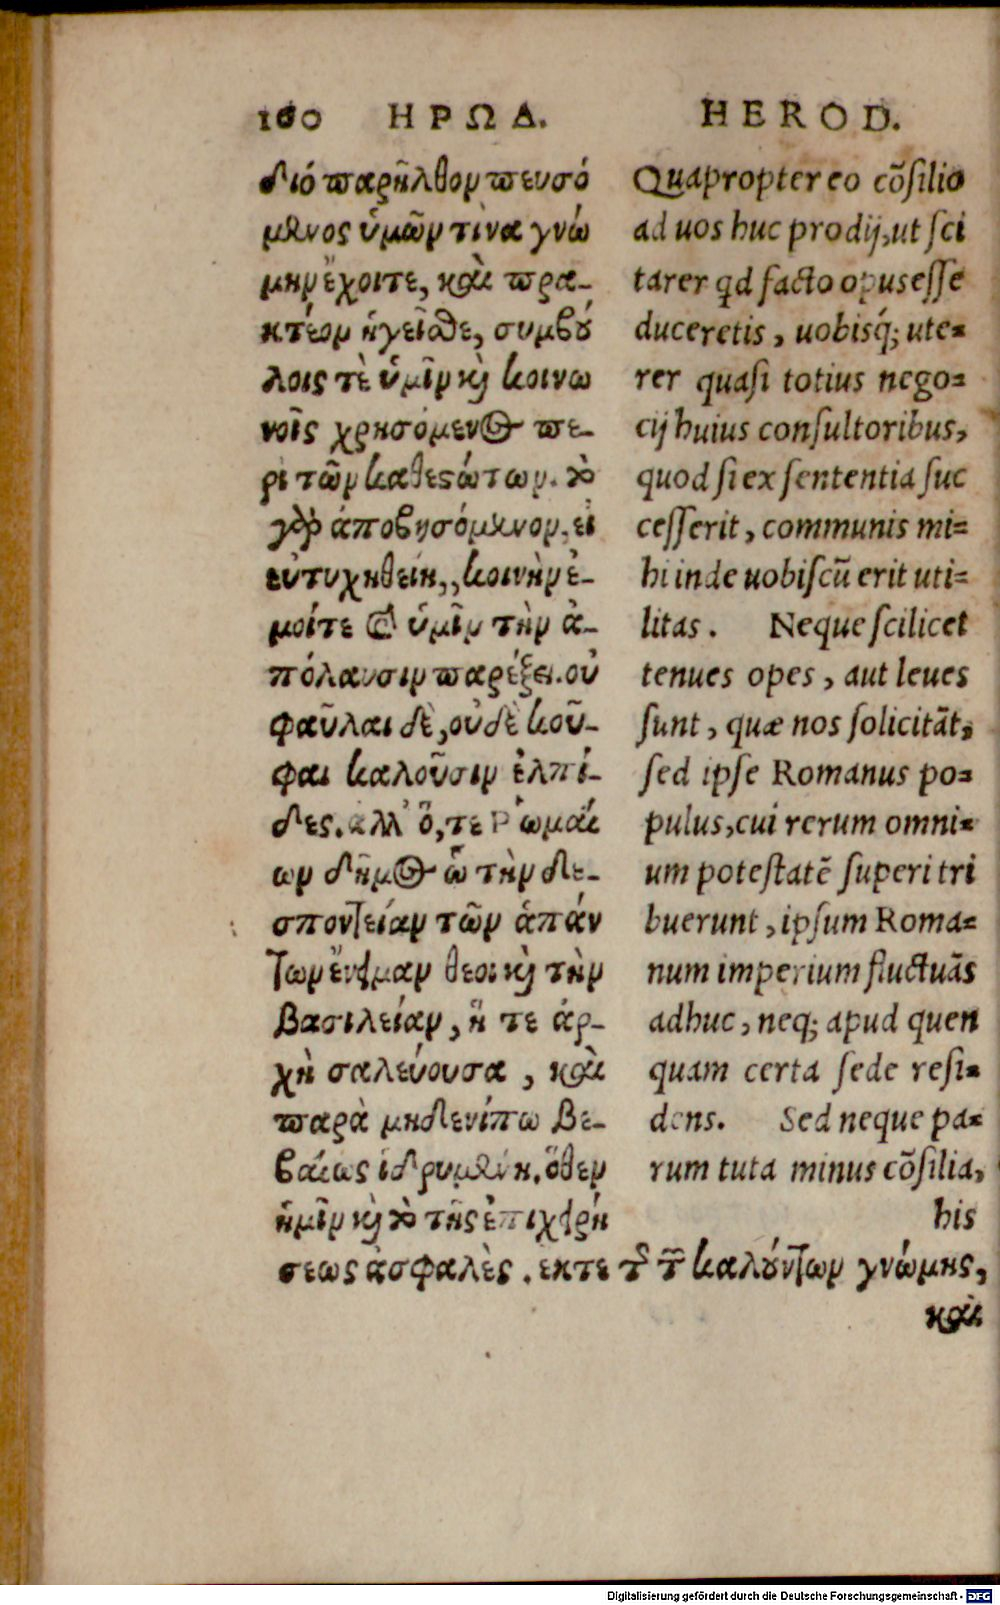 160 ΗΡΩΔ.
διό παρῆλθον πευσό
μενος ὑμῶν τίνα γνώ
μην ἔχοιτε, καὶ πρα-
κτέον ἡγεῖσθε, συμβού
λοις τὲ ὑμῖν καὶ κοινω
νοῖς χρησόμενος πε-
ρὶ τῶν καθεστώτων. τὸ
γὰρ ἀποβησόμενον, εἰ
εὐτυχηθείη, κοινὴν ἐ-
μοίτε καὶ ὑμῖν τὴν ἀ-
πόλαυσιν παρέξει. οὐ
φαῦλαι δὲ, οὐδὲ κοῦ-
φαι καλοῦσιν ἐλπί-
δες. ἀλλ' ὅ, τε Ῥωμαί
ων δῆμος ᾧ τὴν δε-
σποτείαν τῶν ἁπάν
των ἔνειμαν θεοὶ καὶ τὴν
βασιλείαν, ἥ τε ἀρ-
χὴ σαλεύουσα, καὶ
παρὰ μηδενίπω βε-
βαίως ἱδρυμένη. ὅθεν
ἡμῖν καὶ τὸ τῆς ἐπιχειρή
σεως ἀσφαλὲς. ἐκτε τῆς τῶν καλούντων γνώμης,
καὶ
HEROD.
Quapropter eo cõsilio
ad uos huc prodij, ut sci
tarer qd facto opus esse
duceretis, uobisq́; ute=
rer quasi totius nego=
cij huius consultoribus,
quod si ex sententia suc
cesserit, communis mi=
hi inde uobiscũ erit uti=
litas. Neque scilicet
tenues opes, aut leues
sunt, quæ nos solicitãt,
sed ipse Romanus po=
pulus, cui rerum omni=
um potestatẽ superi tri
buerunt, ipsum Roma=
num imperium fluctuãs
adhuc, neq; apud quen
quam certa sede resi=
dens. Sed neque pa=
rum tuta minus cõsilia,
his
Digitalisierung gefördert durch die Deutsche Forschungsgemeinschaft - DFG